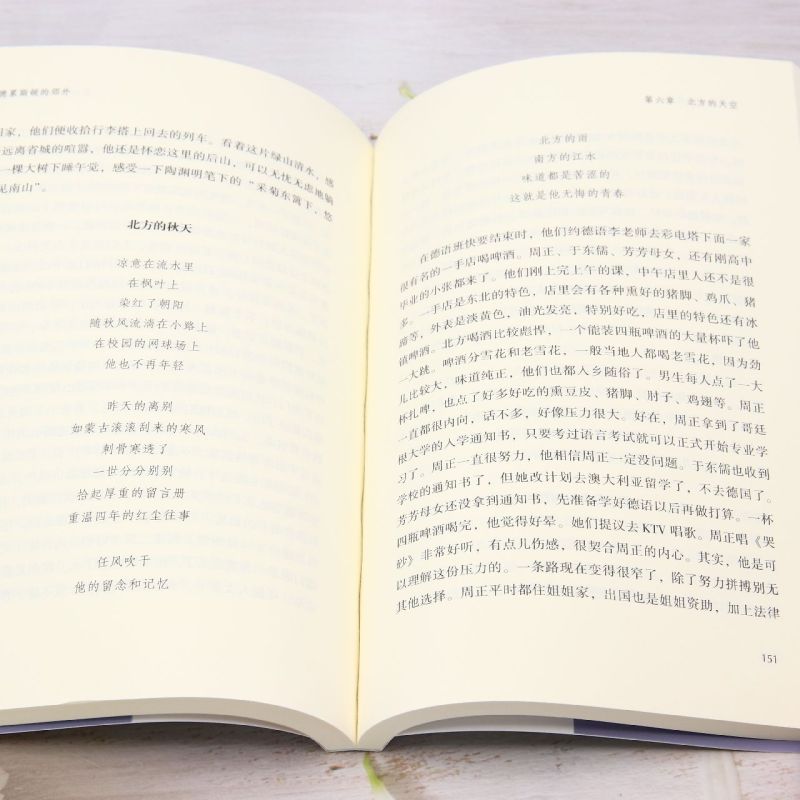 德累斯顿的郊外
家，他们便收拾行李搭上回去的列车。看着这片绿山清水，感
远离省城的喧嚣，他还是怀恋这里的后山，可以无忧无虑地躺
一棵大树下睡午觉，感受一下陶渊明笔下的“采菊东篱下，悠
见南山”。
北方的秋天
凉意在流水里
在枫叶上
染红了朝阳
随秋风流淌在小路上
在校园的网球场上
他也不再年轻
昨天的离别
如蒙古滚滚刮来的寒风
刺骨寒透了
一世分分别别
拾起厚重的留言册
重温四年的红尘往事
任风吹干
他的留念和记忆
第六章 北方的天空
北方的雨
南方的江水
味道都是苦涩的
这就是他无悔的青春
在德语班快要结束时，他们约德语李老师去彩电塔下面一家
很有名的一手店喝啤酒。周正、于东儒、芳芳母女，还有刚高中
毕业的小张都来了。他们刚上完上午的课，中午店里人还不是很
多。一手店是东北的特色，店里会有各种熏好的猪脚、鸡爪、猪
蹄等，外表是淡黄色，油光发亮，特别好吃，店里的特色还有冰
镇啤酒。北方喝酒比较彪悍，一个能装四瓶啤酒的大量杯吓了他
一大跳。啤酒分雪花和老雪花，一般当地人都喝老雪花，因为劲
儿比较大，味道纯正，他们也都入乡随俗了。男生每人点了一大
杯扎啤，也点了好多好吃的熏豆皮、猪脚、肘子、鸡翅等。周正
一直都很内向，话不多，好像压力很大。好在，周正拿到了哥廷
根大学的入学通知书，只要考过语言考试就可以正式开始专业学
习了。周正一直很努力，他相信周正一定没问题。于东儒也收到
学校的通知书了，但她改计划去澳大利亚留学了，不去德国了。
芳芳母女还没拿到通知书，先准备学好德语以后再做打算。一杯
四瓶啤酒喝完，他觉得好晕。她们提议去 KTV 唱歌。周正唱《哭
砂》非常好听，有点儿伤感，很契合周正的内心。其实，他是可
以理解这份压力的。一条路现在变得很窄了，除了努力拼搏别无
其他选择。周正平时都住姐姐家，出国也是姐姐资助，加上法律
151